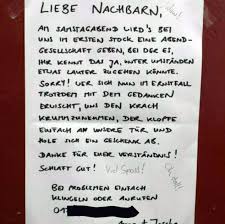 LIEBE NACHBARN,
AM SAMSTAGABEND WIRD'S BEI
UNS IM ERSTEN STOCK EINE ABEND-
GESELLSCHAFT GEBEN, BEI DER ES,
IHR KENNT DAS JA, UNTER UMSTÄNDEN
ETWAS LAUTER ZUGEHEN KÖNNTE.
SORRY! WER SICH NUN IM ERNSTFALL
TROTZDEM MIT DEM GEDANKEN
BRÜSCHT, UNS DEN KRACH
KRUMMZUNEHMEN, DER KLOPFE
EINFACH AN UNSERE TÜR UND
HOLE SICH EIN GESCHENK AB.
DANKE FÜR EUER VERSTÄNDNIS!
SCHLAFT GUT! Viel Spass!
BEI PROBLEMEN EINFACH
KLINGELN ODER ANRUFEN